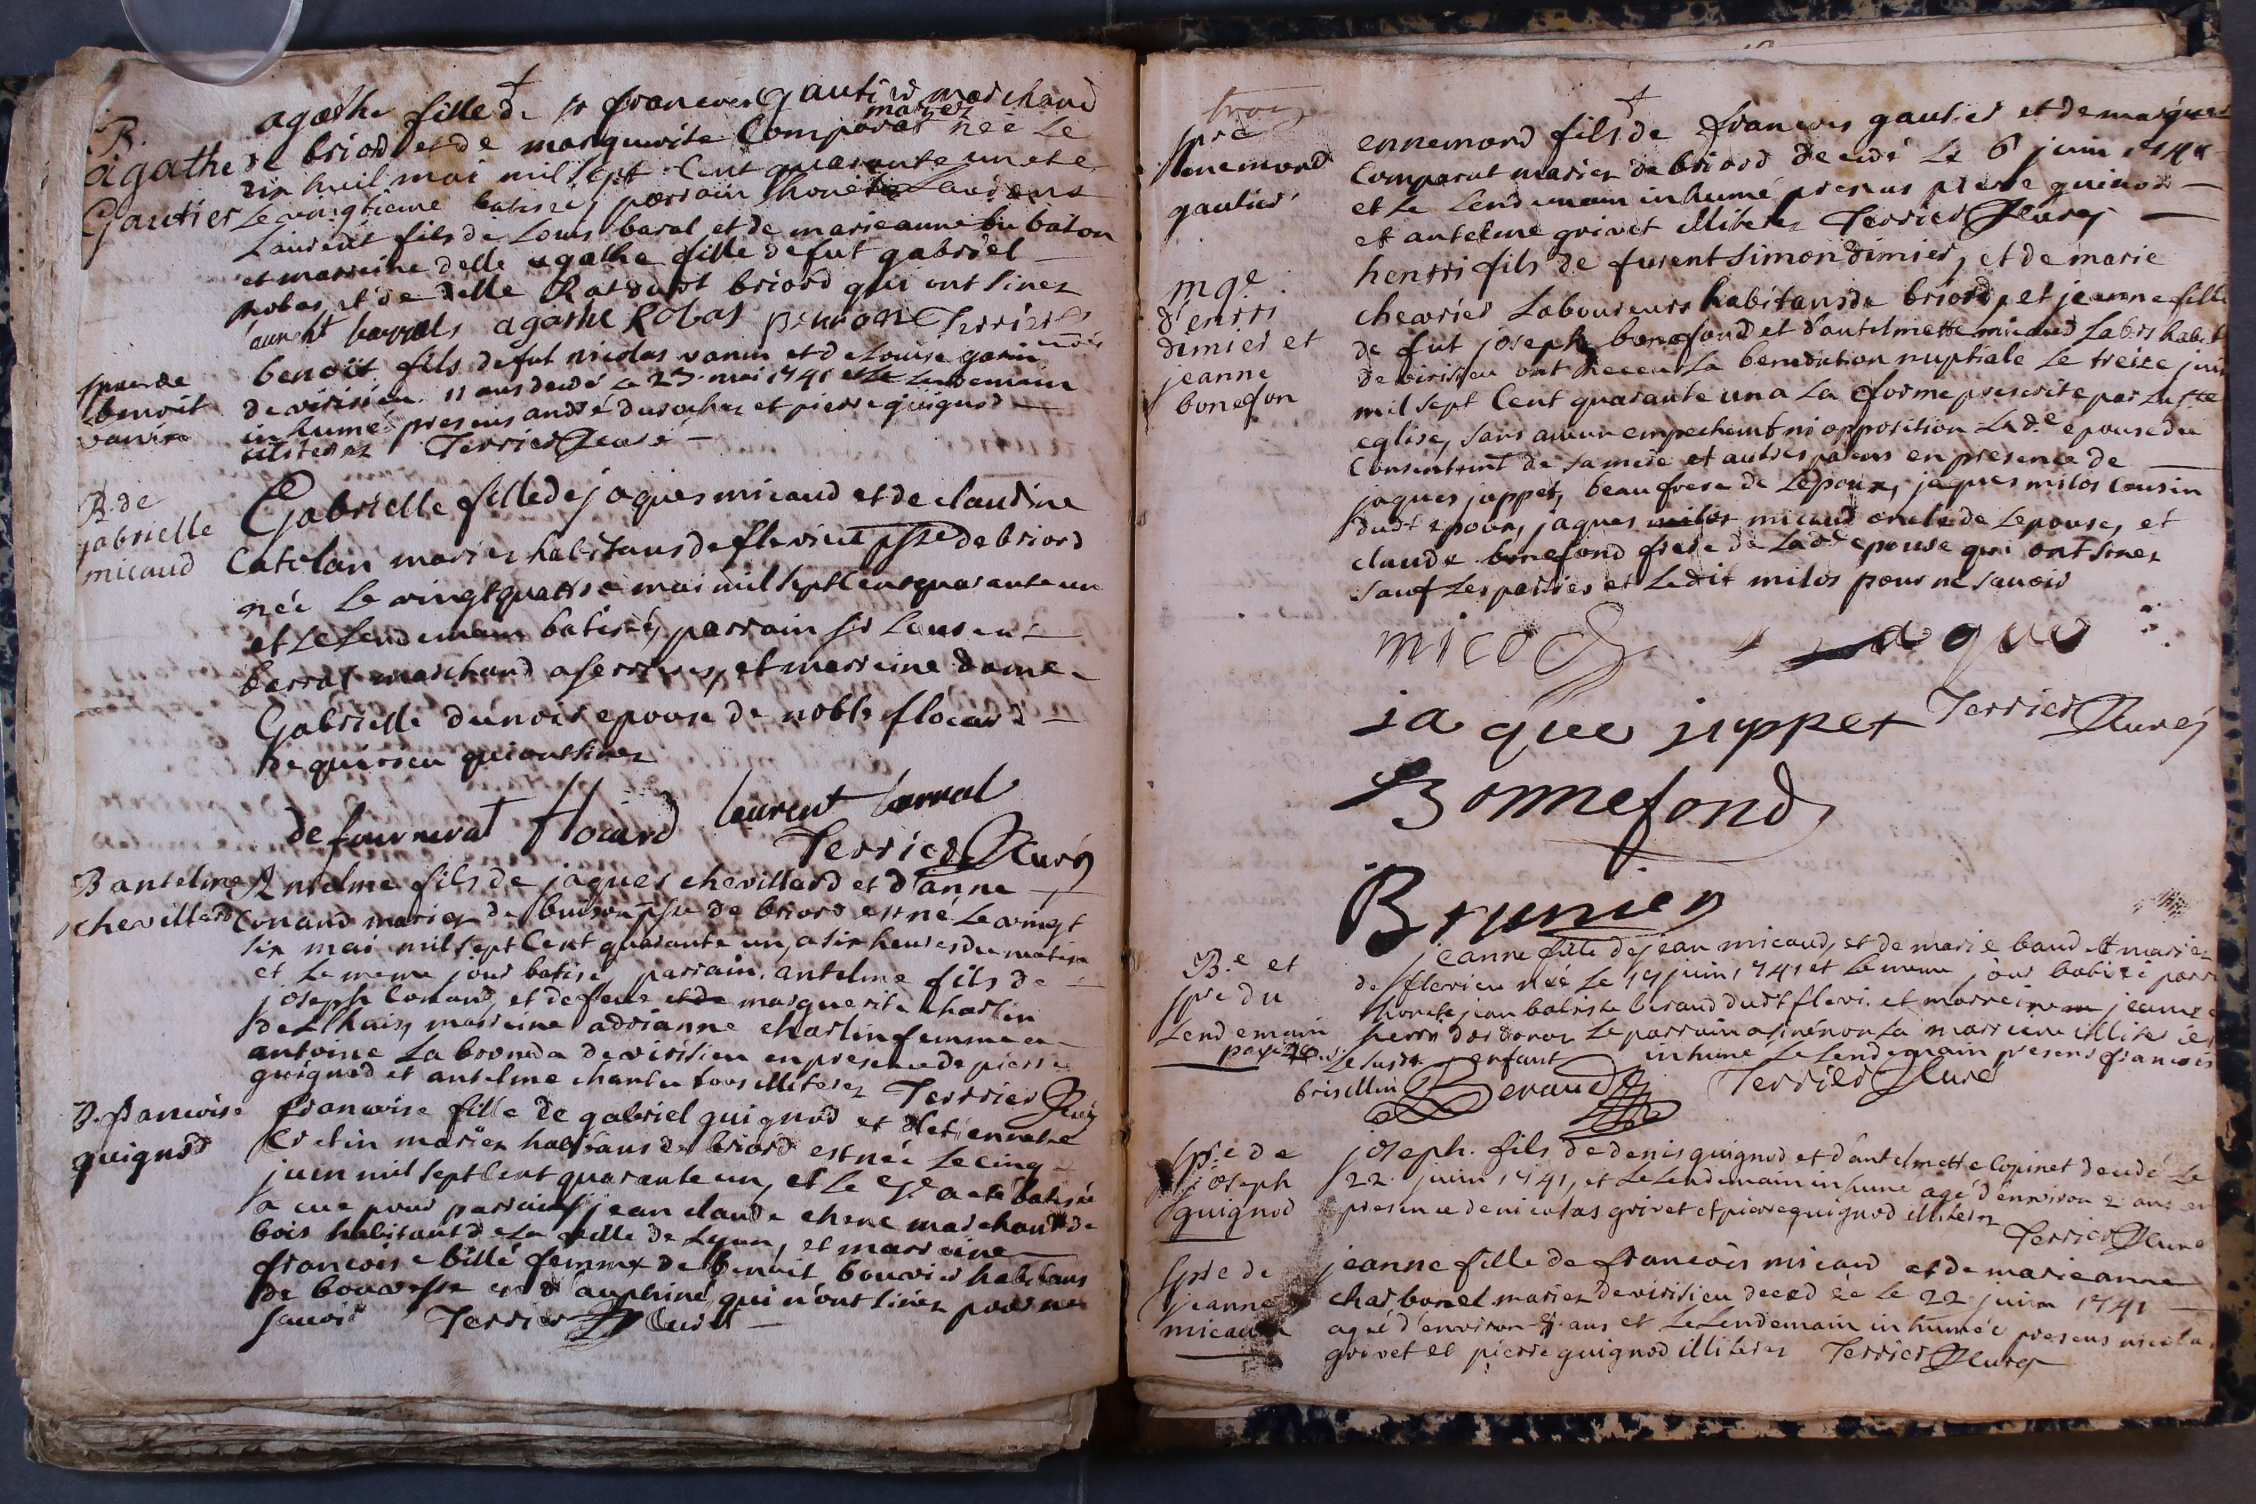 B.
agathe
Gautier
agathe fille de sr francois Gautier marchand
de briord et de marguerite Comparat mariez née le
dix huit mai mil sept Cent quarante un et le
le vingtieme batisée, parrain honête Laurent
Laurent fils de Louis baral et de marieanne du baton
et marreine delle agathe fille de fut gabriel
robas et de delle briord qui ont sinez
laurent barral agathe Robas Terrier
spre de
benoit
vanin
benoit fils de fut nicolas vanin et de Louise garin
de virisieu 11 ans decedé le 23 mai 1741 et le lendemain
inhumé presens andré durochez et pierre guignod
illiterez Terrier Curé
B. de
gabrielle
micaud
Gabrielle fille de jaques micaud et de claudine
Catelan mariez habitans de flevieu psse de briord
née le vingt quatre mai mil sept Cent quarante un
et le lendemain batisée, parrain sr Laurent
barral marchand a serrieres, et marreine dame
Gabrielle dunoir epouse de noble flocard
de quirieu qui ont sinez
de fournerat flocard laurent barral
Terrier Curé
B antelme
chevillard
Antelme fils de jaques chevillard et d'anne
Conand mariez de buison psse de briord est né le vingt
six mai mil sept Cent quarante un, a six heures du matin
et le meme jour batisé, parrain antelme fils de
joseph Conand, et de feue et de marguerite charlin
de Lhuis, marreine adrianne charlin femme a
antoine La bronda de virisieu en presence de pierre
guignod et antelme charlin tous illiterez Terrier Curé
B. francoise
guignod
francoise fille de gabriel guignod et d'etiennette
Cretin mariez habitans de briord est née le cinq
juin mil sept Cent quarante un, et le 7e a eté batisée
a eue pour parrain sr jean claude chene marchand de
bois habitant de La ville de Lyon, et marreine
francoise billé femme de benoit bouvier habitans
de bouvesse en dauphiné, qui n'ont sinez pour ne
savoir Terrier Curé
spre
ennemond
gautier
ennemond fils de francois gautier et de marguer
Comparat mariez de briord decedé le 6 juin 1741
et le lendemain inhumé presens pierre guignod
et antelme grivet illiterez Terrier Curé
mge
d'enrri
dimier et
jeanne
bonefon
henrri fils de furent simon dimier, et de marie
chearrier Laboureurs habitans de briord, et jeanne fille
de fut joseph bonefond et d'antelmette micaud labrs habit
de virisieu ont receu La benediction nuptiale le treize juin
mil sept Cent quarante un a La forme prescrite par Lad ste
eglise, sans aucun empechemt ni opposition Lad.e epouse du
Consentemt de sa mere et autres parens en presence de
jaques juppet, beaufrere de Lepoux, jaques milos Cousin
dudt epoux, jaques milos micaud oncle de Lepouse, et
claude bonefond frere de Ladte epouse qui ont sinez
sauf Les parties et Ledit milos pour ne savoir
micod jaque
ja que juppet Terrier Curé
Bonnefond
Brunier
B.e et
spre du
lendemain
jeanne fille de jean micaud, et de marie baudet mariez
de flevieu née le 19 juin 1741 et le meme jour batisée parr
honete jean batiste beraud dudt flevi. et marreine jeanne
perrin Le parrain a siné non La marreine illiterée
Le susdt enfant inhumé le lendemain presens francois
brisellin Beraud Terrier Curé
spre de
joseph
guignod
joseph fils de denis guignod et d'antelmette Copinet decedé le
22 juin 1741, et le lendemain inhumé agé d'environ 2 ans en
presence de nicolas grivet et pierre guignod illiterez
Terrier Curé
spre de
jeanne
micaud
jeanne fille de francois micaud et de marieanne
charbonel mariez de virisieu decedée le 22 juin 1741
agée d'environ ans et le lendemain inhumée presens nicolas
grivet et pierre guignod illiterez Terrier Curé